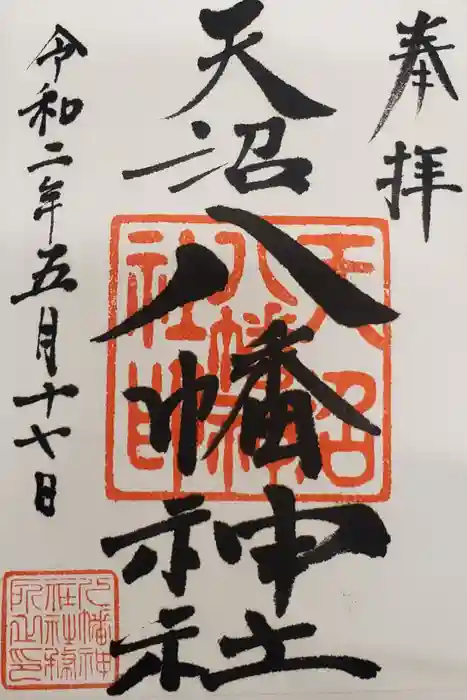 奉拝
天沼八幡神社
令和二年五月十七日
天沼
八幡神
社印
八幡神
社社務
所之印